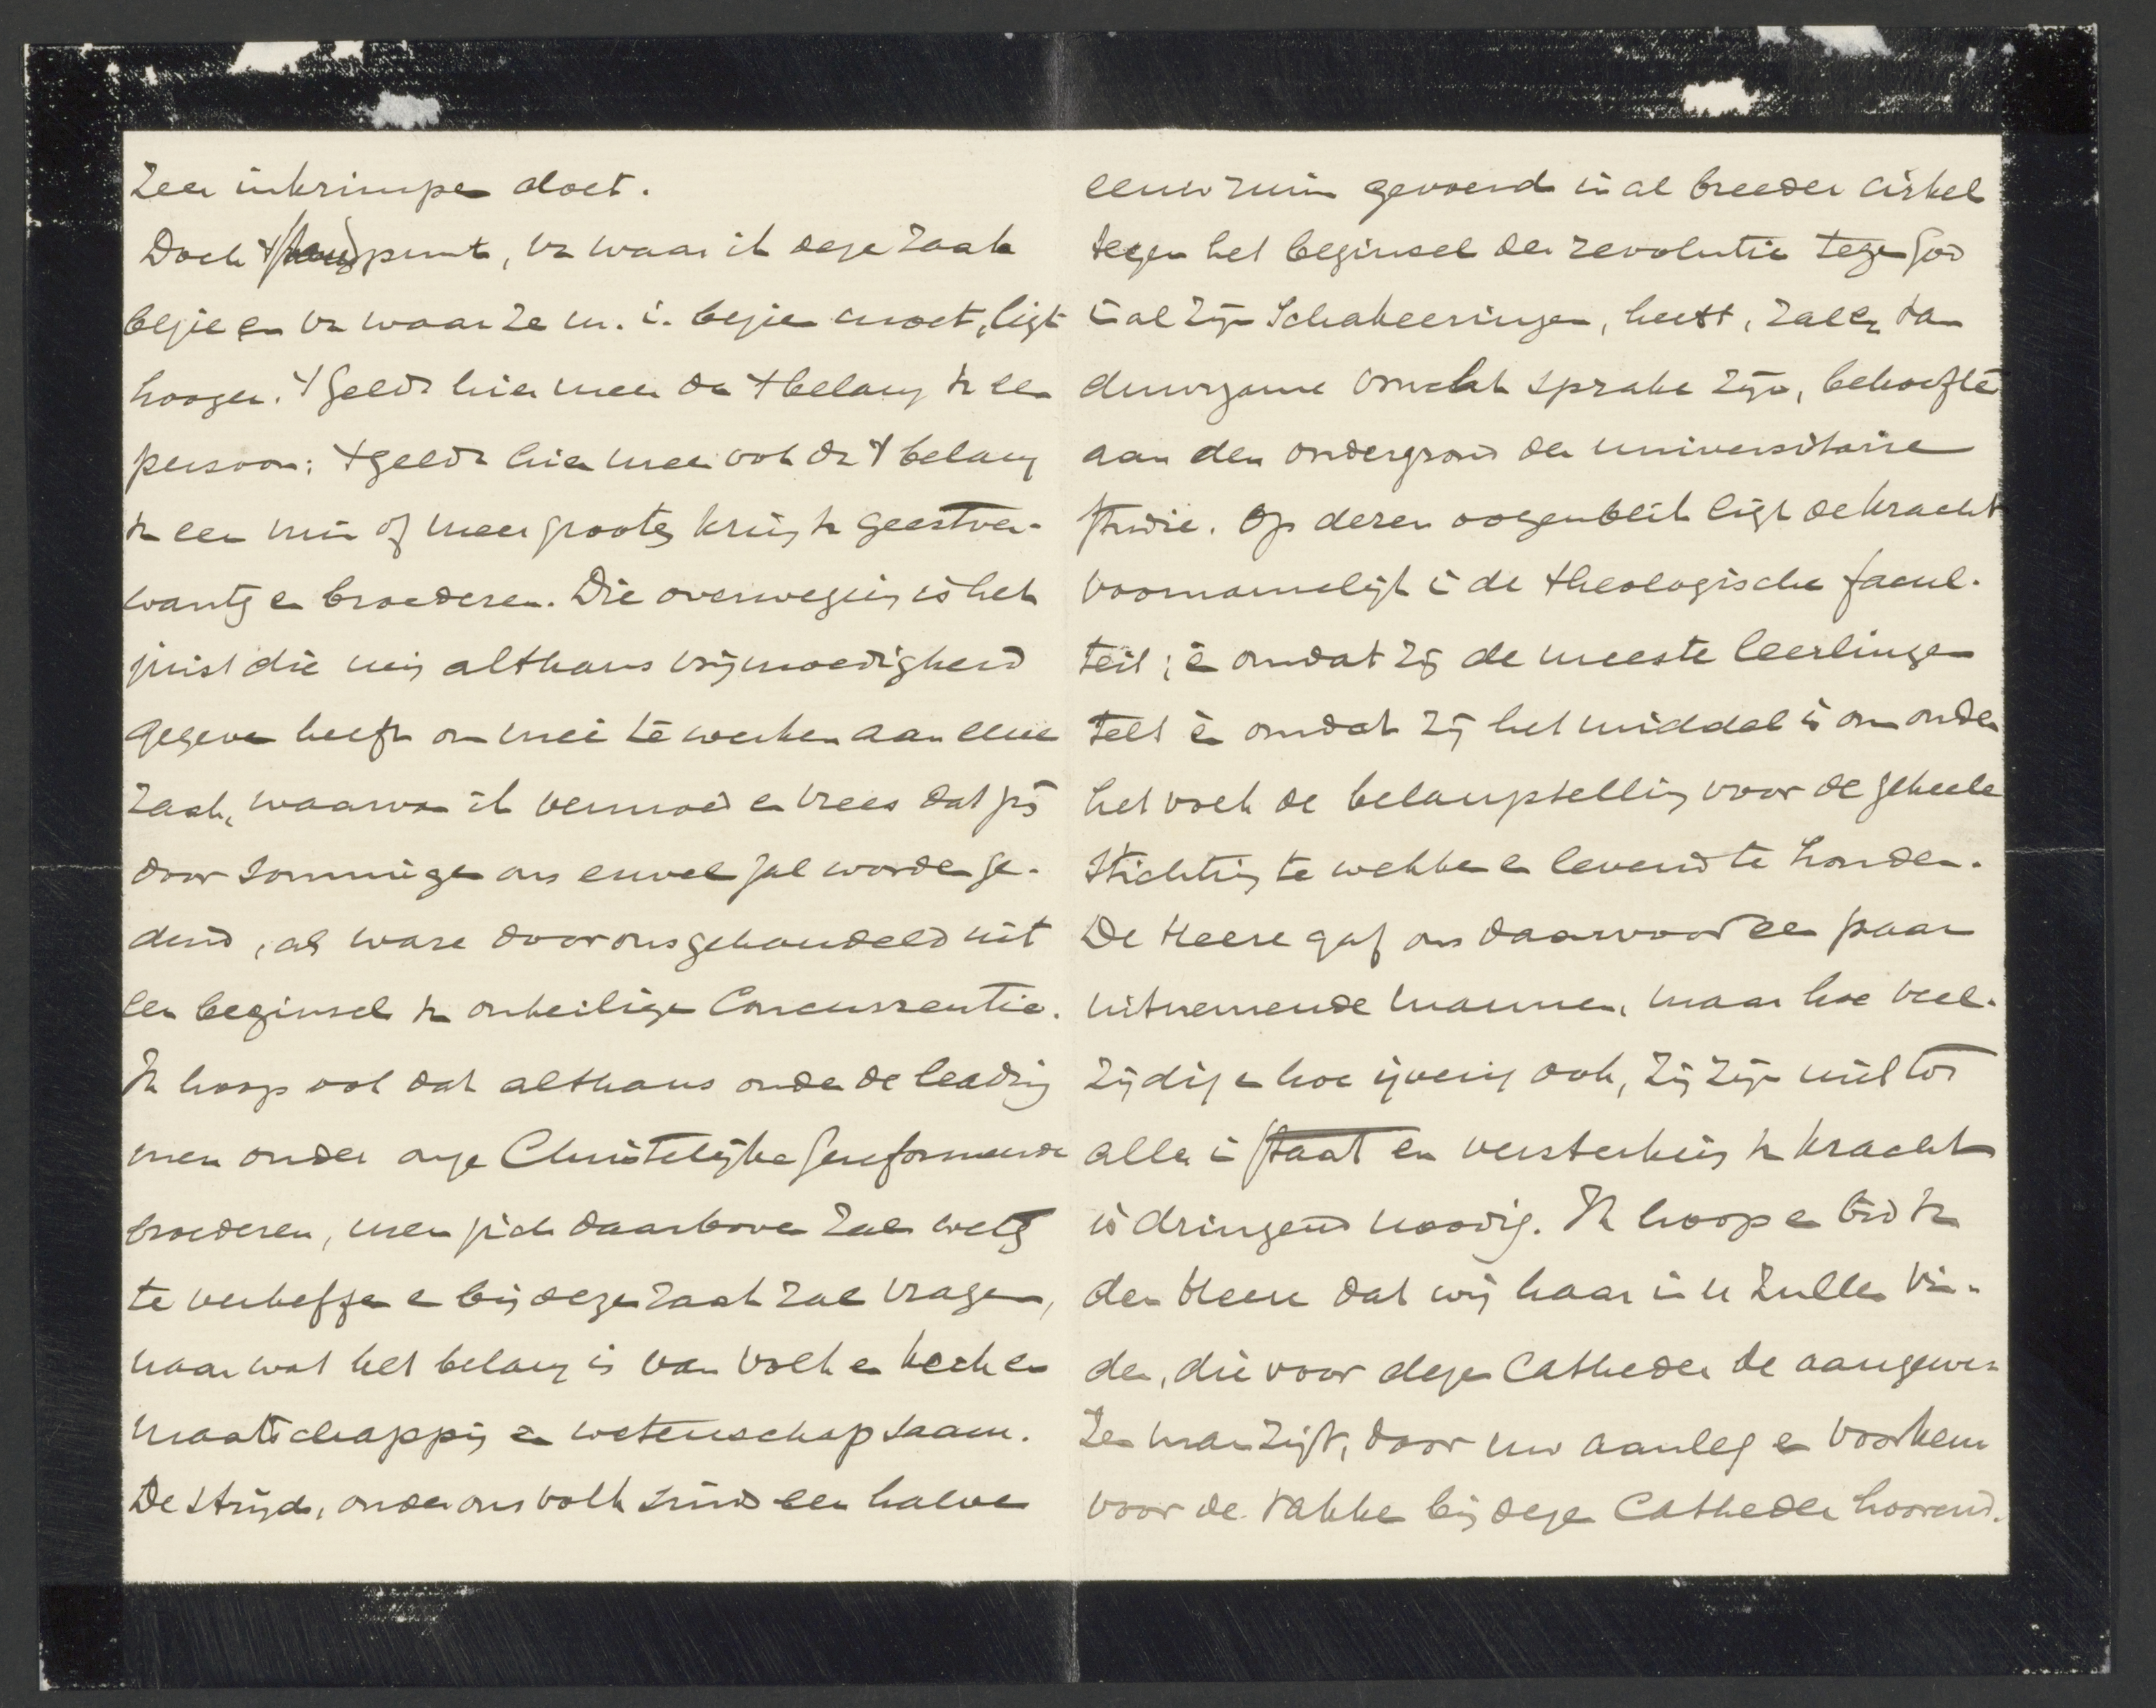 zeer inkrimpen doet.
Doch 't standpunt, van waar ik deze zaak
bezie en van waar ze m.i. bezien moet, ligt
hooger. 't Geldt hier meer dan 't belang van een
persoon; 't geldt hier meer ook dan 't belang
van een min of meer grooten kring van geestver-
wanten en broederen. Die overweging is het
juist die mij althans vrijmoedigheid
gegeven heeft om mee te werken aan eene
zaak, waarvan ik vermoed en vrees dat zij
door sommigen ons euvel zal worden ge-
duid, als ware door ons gehandeld uit
een beginsel van onheilige concurrentie.
Ik hoop ook dat althans onder de leading
men onder onze Christelijke Gereformeerde
broederen, men zich daarboven zal weten
te verheffen en bij deze zaak zal vragen,
naar wat het belang is van volk en kerk en
maatschappij en wetenschap saam.
De strijd, onder ons volk sinds een halve
eeuw ruim gevoerd in al breeder cirkel
tegen het beginsel der revolutie tegen God
in al zijn schakeeringen, heeft, zal er van
duurzame vrucht sprake zijn, behoefte
aan den ondergrond der universitaire
studie. Op dezen oogenblik ligt de kracht
voornamelijk in de theologische facul-
teit; èn omdat zij de meeste leerlingen
telt èn omdat zij het middel is om onder
het volk de belangstelling voor de geheele
stichting te wekken en levend te houden.
De Heere gaf ons daarvoor een paar
uitnemende mannen, maar hoe veel-
zijdig en hoe ijverig ook, zij zijn niet tot
alles in staat en versterking van kracht
is dringend noodig. Ik hoop en bid van
den Heere dat wij haar in U zullen vin-
den, die voor dezen Catheder de aangewe-
zen man zijt, door uw aanleg en voorkeur
voor de vakken bij dezen Catheder hoorend.